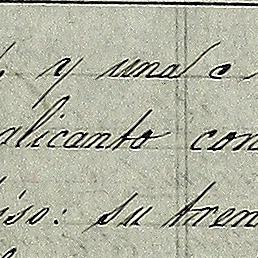 y una c
alicanto con
iso: su tren